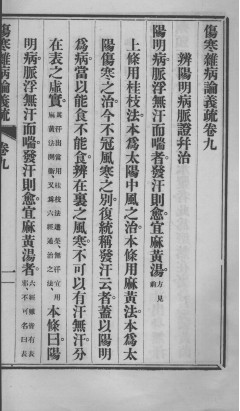 傷寒雜病論義疏卷九
辨陽明病脈證幷治
陽明病脈浮無汗而喘者發汗則愈宜麻黃湯方見前
上條用桂枝法本爲太陽中風之治本條用麻黃法本爲太
陽傷寒之治今不冠風寒之别復統稱發汗云者蓋以陽明
爲病當以能食不能食辨在裏之風寒不可以有汗無汗分
在表之虛實
本條曰陽
明病脈浮無汗而喘發汗則愈宜麻黃湯者六經雖皆有表邪不可名曰表
傷寒雜病論義疏 卷九 一